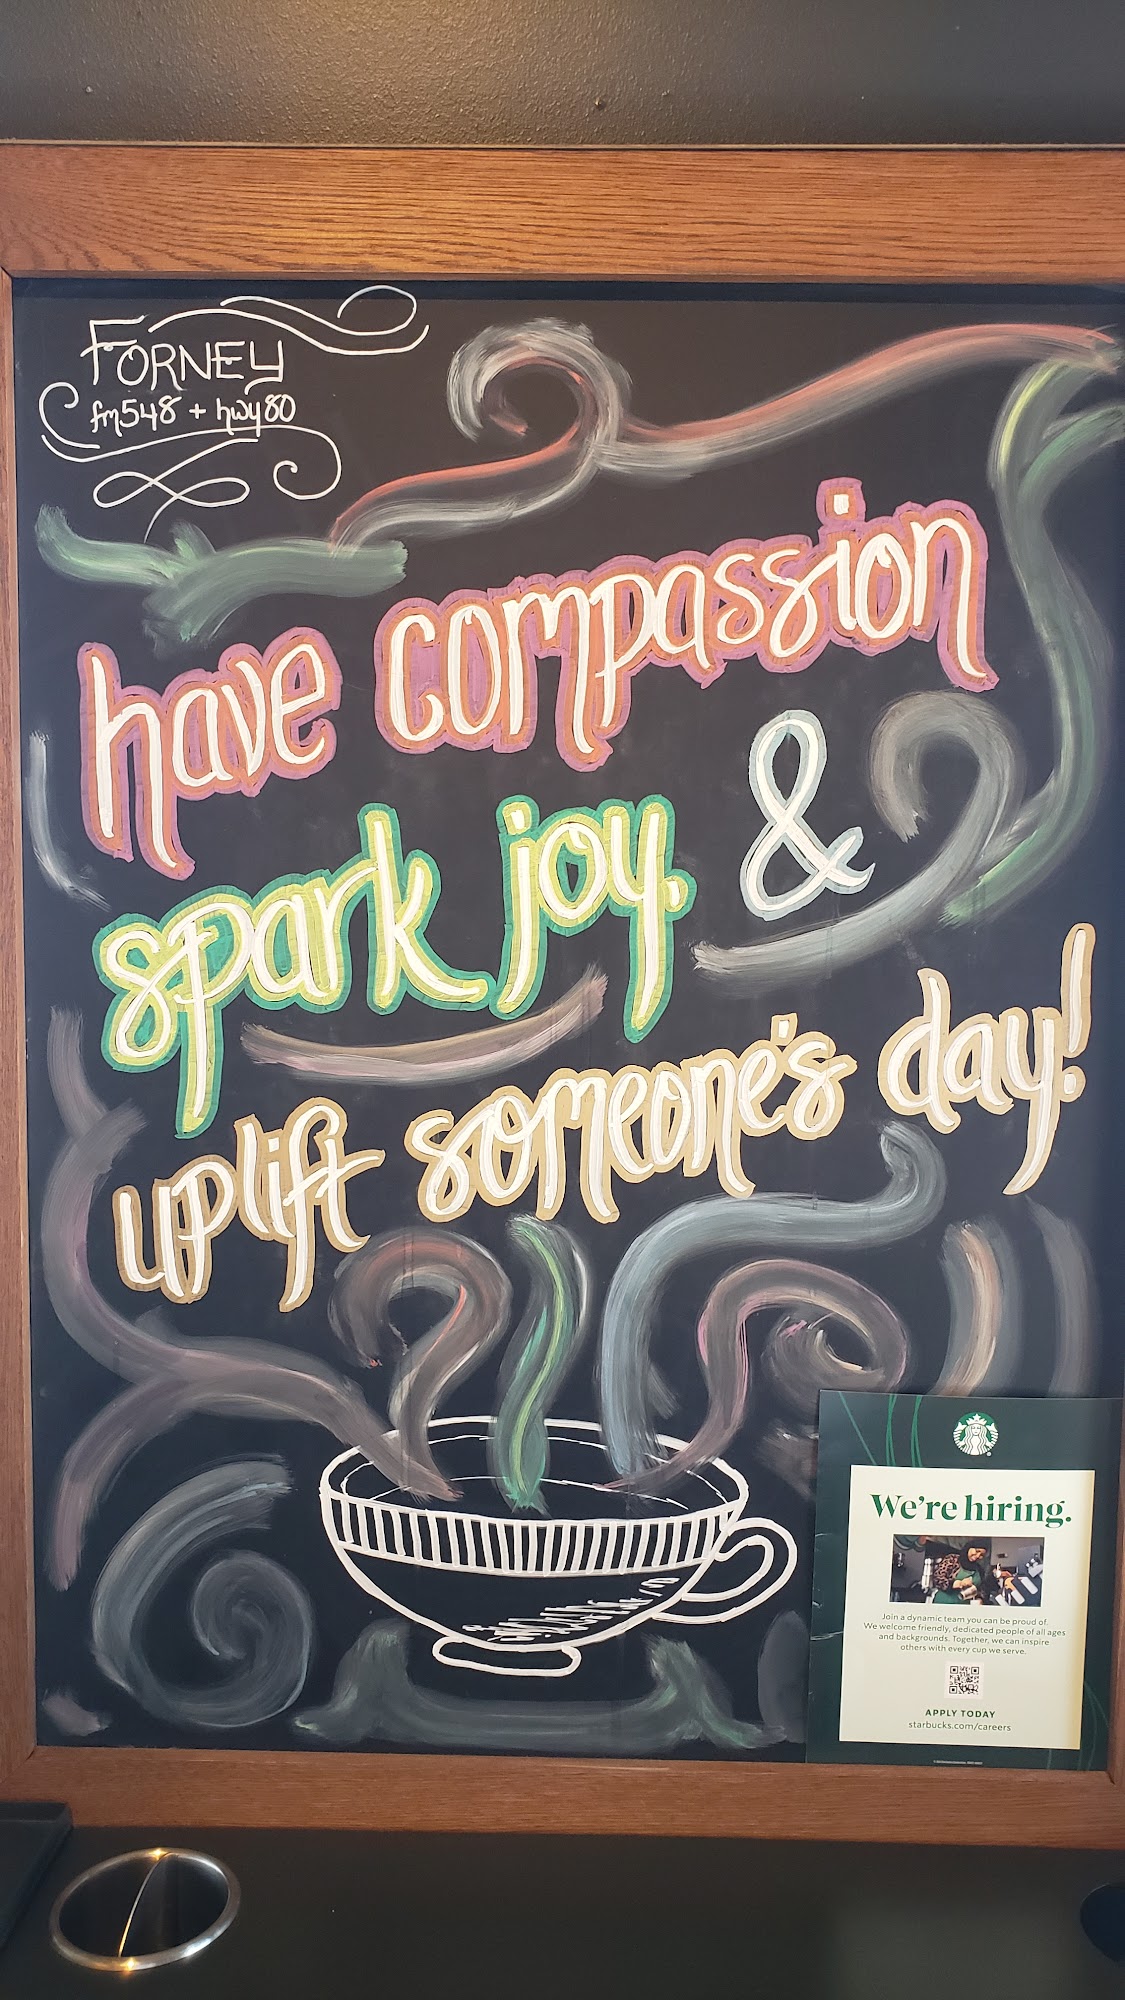 FORNEY
fm548 + hwy80
have compassion
spark joy, &
uplift someone's day!
We're hiring.
Join a dynamic team you can be proud of.
We welcome friendly, dedicated people of all ages
and backgrounds. Together, we can inspire
others with every cup we serve.
APPLY TODAY
starbucks.com/careers